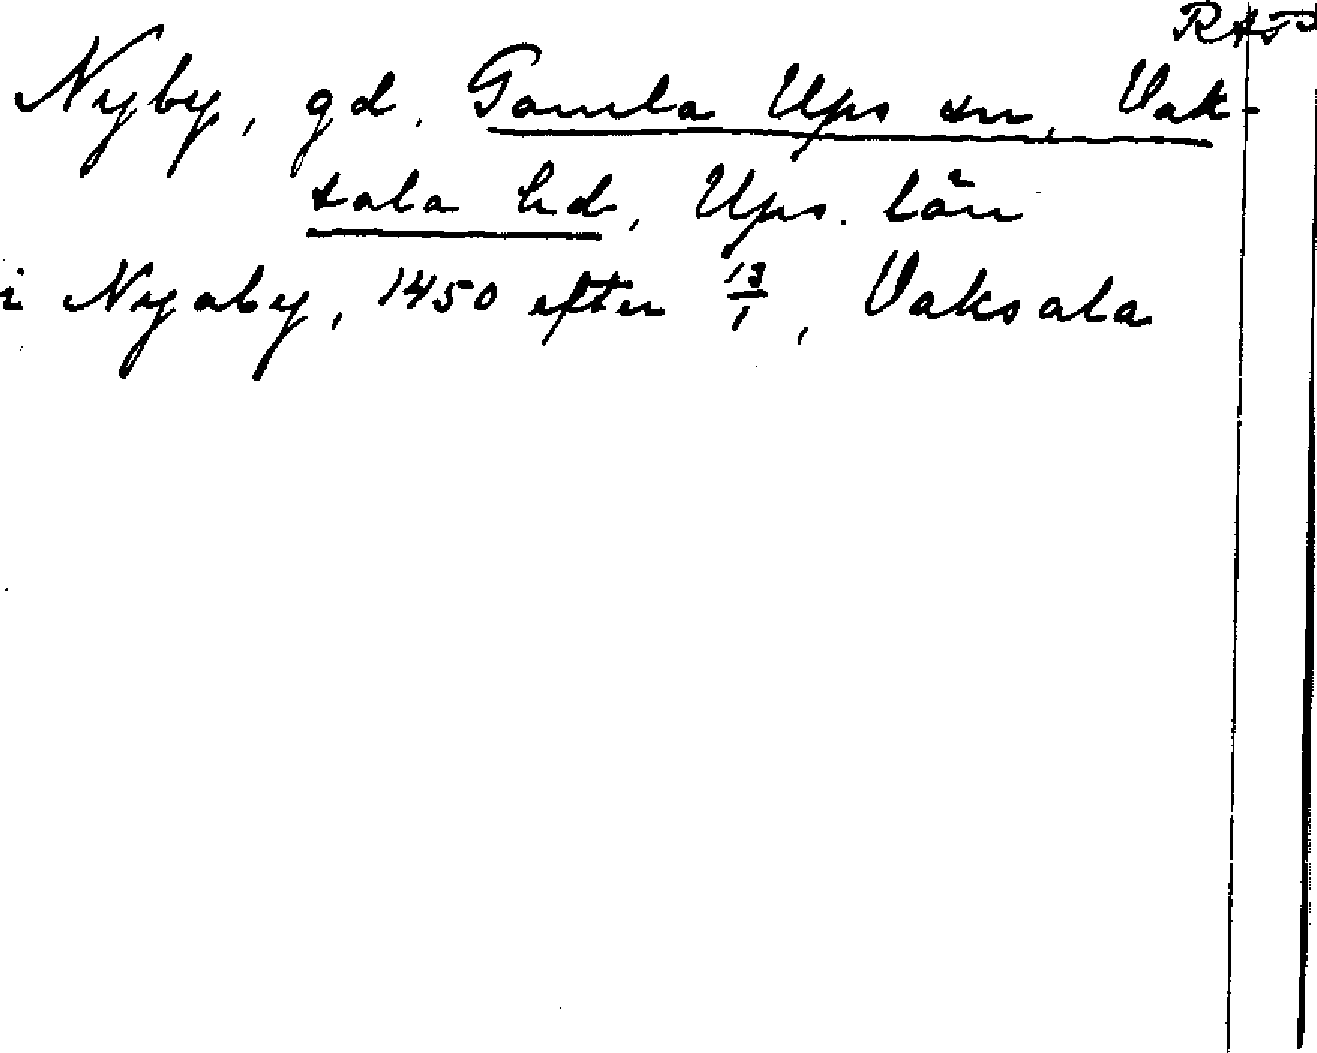 RAP
Nyby, gd. Gamla Ups sn, Vak-
sala hd, Ups. län
i Nyaby, 1450 efter 13/1, Vaksala